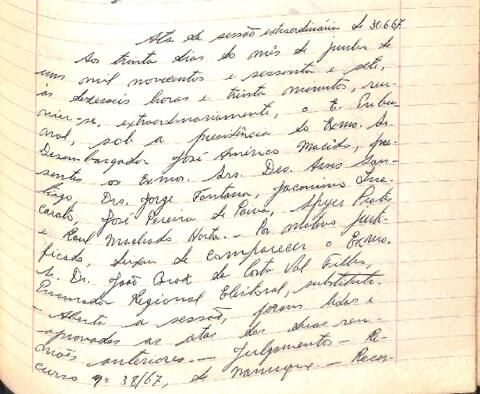 Ata da sessão extraordinária de 30.6.67
Aos trinta dias do mês de junho de
um mil novecentos e sessenta e sete,
às dezesseis horas e trinta minutos, reu-
niu-se, extraordinariamente, o E. Tribu-
nal, sob a presidência do Exmo. Sr.
Desembargador José Américo Macêdo, pre-
sentes os Exmos. Srs. Des. Assis San-
tiago, Drs. Jorge Fontana, Jacomino Ina-
carato, José Pereira de Paiva, Spyer Prates
e Raul Machado Horta. - Por motivo justi-
ficado deixou de comparecer o Exmo.
Sr. Dr. João Braz da Costa Val Filho,
Procurador Regional Eleitoral, substituto.
- Aberta a sessão, foram lidas e
aprovadas as atas das duas reu-
niões anteriores. - Julgamentos - Re-
curso nº 38/67, de Nanuque. - Recor-